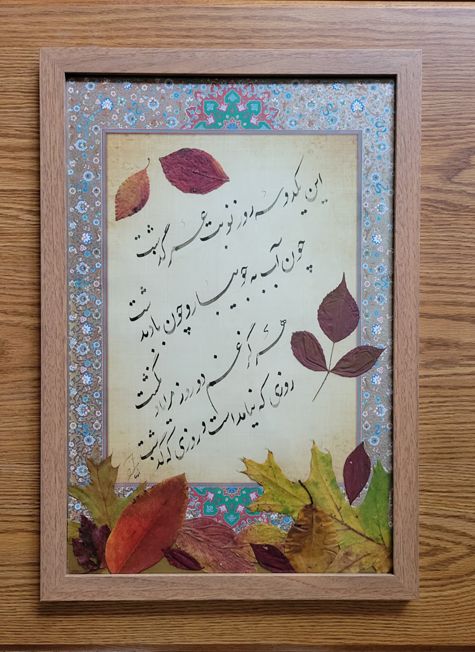 این یکدو سه روز نوبت عمر گذشت
چون آب به جویبار و چون باد بدشت
هرگز غم دو روز مرا یاد نگشت
روزی که نیامداست و روزی که گذشت